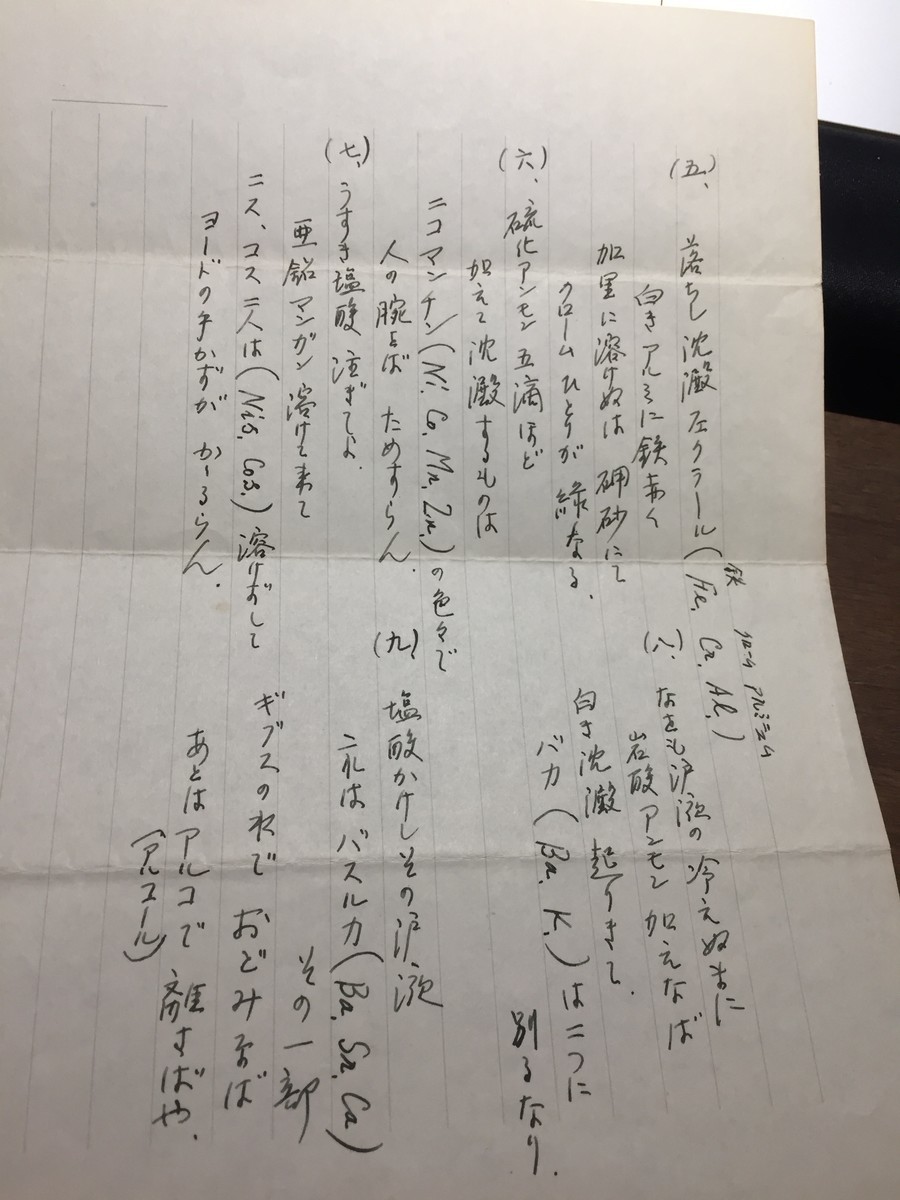 (五)、落ちし沈澱圧クラール(Fe. Cr. Al.)
鉄
クローム アルミニユム
白きアルミに鉄赤く
加里に溶けぬは 硼砂にて
クロームひとりが 緑なる.
(六)、硫化アンモン 五滴ほど
加えて沈澱するものは
ニコマンチン(Ni. Co. Mn. Zn.)の色々で
人の腕よば ためすらん.
(七)、うすき塩酸 注ぎてよ.
亜鉛マンガン 溶けて来て
ニス、コス二人は(NiS. CoS.)溶けずして
ヨードの手かずが かゝるらん.
(八)、なをも沪液の 冷えぬまに
岩酸アンモン 加えなば
白き沈澱 起りきて.
バカ(Ba. K.)は二つに
別るなり.
(九)、塩酸かけし その沪液
元は バスルカ(Ba. Sr. Ca)
その一部
ギブスの水で おどみなば
あとは アルコで 離すばや.
(アルコール)